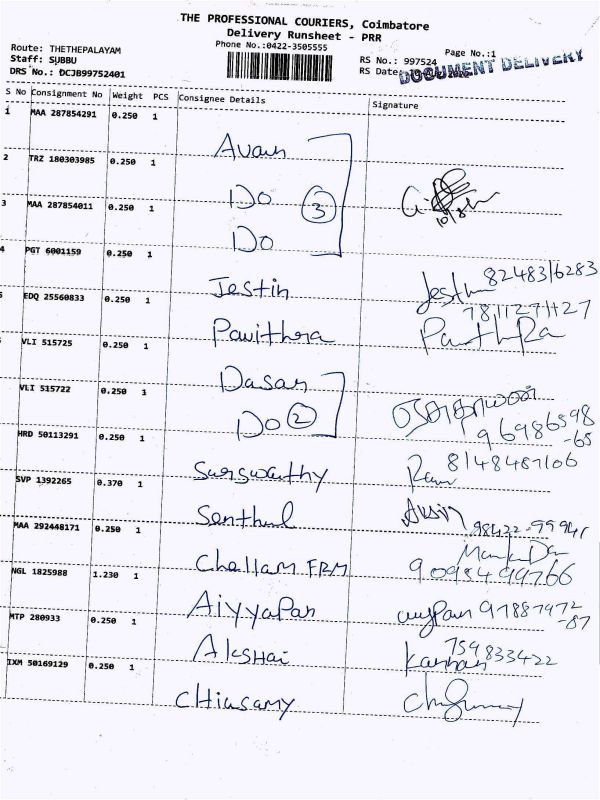 THE PROFESSIONAL COURIERS, Coimbatore
Delivery Runsheet - PRR
Phone No.:0422-3505555
Route: THETHEPALAYAM
Staff: SUBBU
DRS No.: DCJB99752401
Page No.:1
RS No.: 997524
RS Date:
DOCUMENT DELIVERY
S No Consignment No Weight PCS Consignee Details Signature
1 MAA 287854291 0.250 1
2 TRZ 180303985 0.250 1 Do 3
3 MAA 287854011 0.250 1 Do
4 PGT 6001159 0.250 1 Jestin 8248316283
5 EDQ 25560833 0.250 1 Pavithra 7811271127
VLI 515725 0.250 1 Dasan
VLI 515722 0.250 1 Do 2 96986598-65
HRD 50113291 0.250 1 Surswathy 8148487106
SVP 1392265 0.370 1 Senthul 98422-99941
MAA 292448171 0.250 1 Challam FRM 9095499766
NGL 1825988 1.230 1 Aiyyapan 97887972-87
MTP 280933 0.250 1 Akshai Kannan 759833422
IXM 50169129 0.250 1 Chiusamy